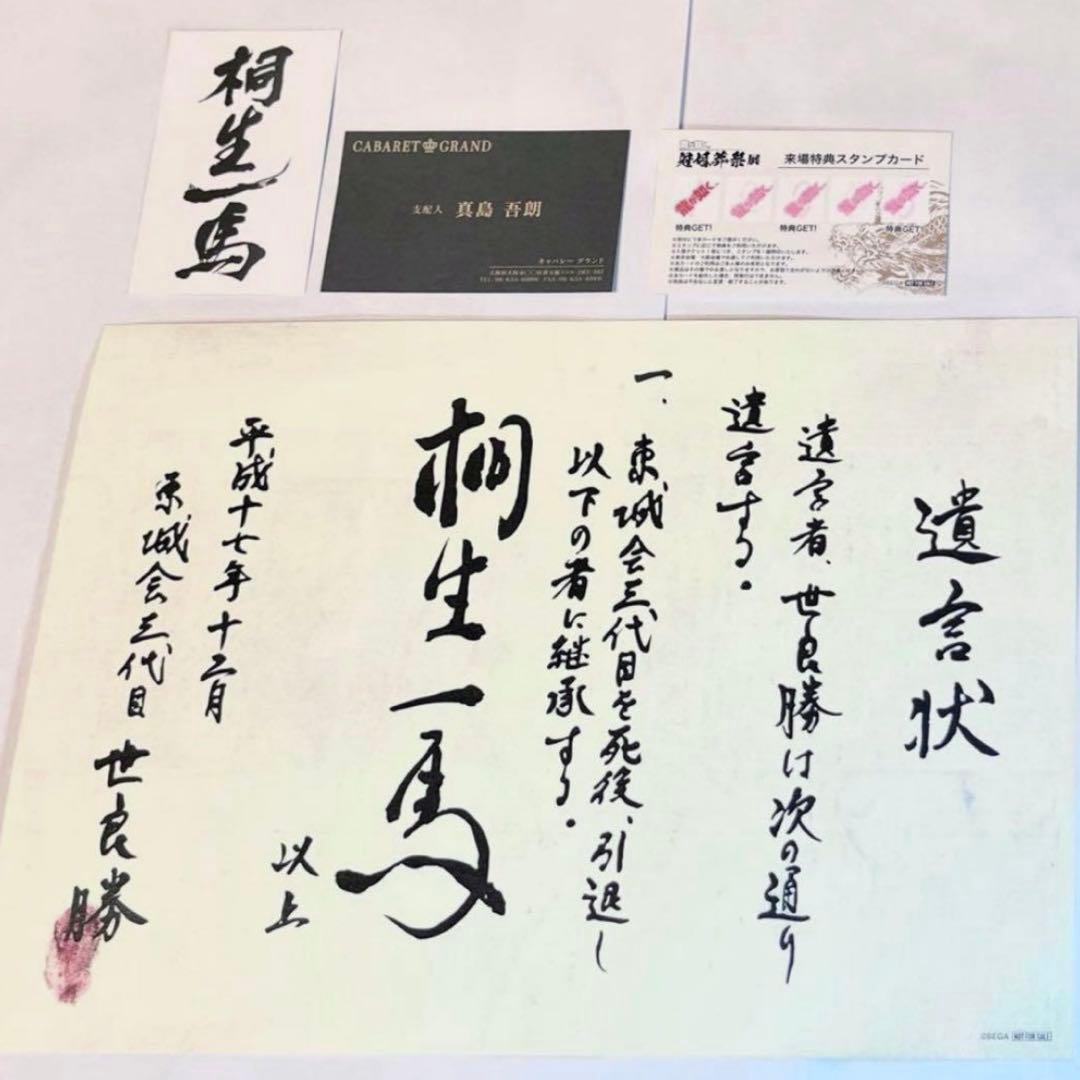 桐生一馬
CABARET GRAND
支配人 真島 吾朗
キャバレー グランド
龍が如く
冠婚葬祭展
来場特典スタンプカード
特典GET!
特典GET!
特典GET!
©SEGA NOT FOR SALE
遺言状
遺字者、世良勝は次の通り
遺言する。
一、東城会三代目を死後、引退し
以下の者に継承する。
桐生一馬
以上
平成十七年十二月
東城会三代目 世良勝
©SEGA NOT FOR SALE